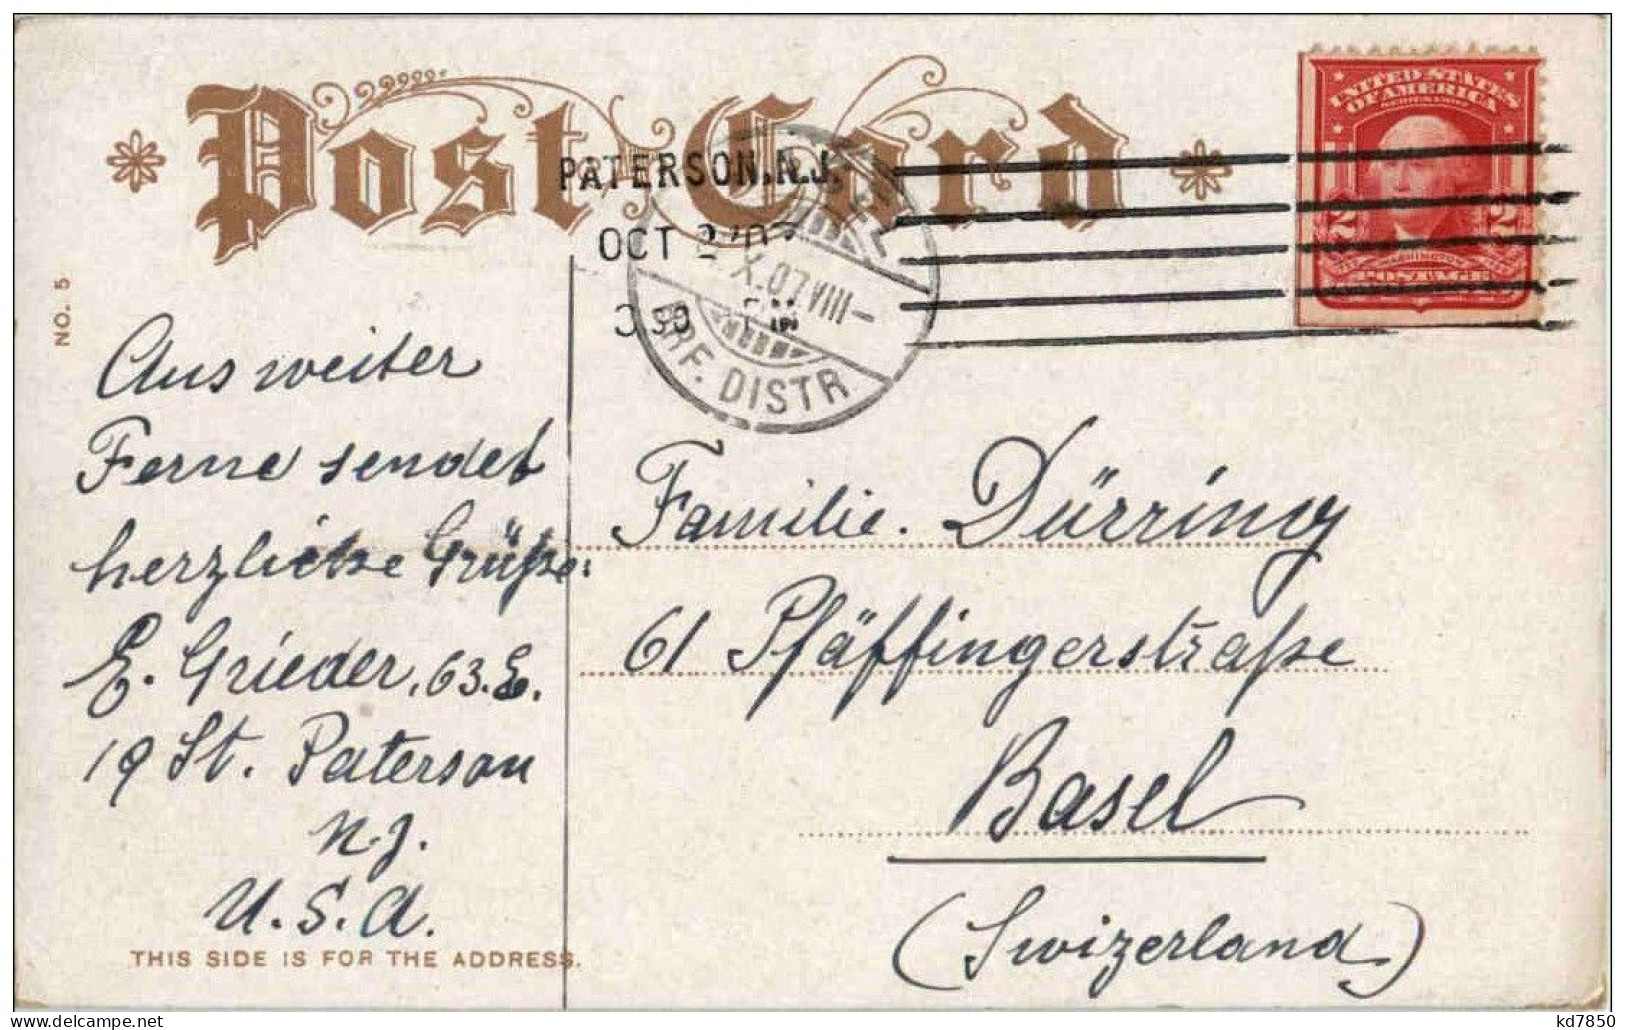 Post Card
UNITED STATES
OF AMERICA
SERIES 1902
2 2
WASHINGTON
POSTAGE
PATERSON, N.J.
OCT 2 '07
X.07 VIII-
BRF. DISTR.
NO. 5
Aus weiter
Ferne sendet
herzliche Grüße
E. Grieder, 63. E.
19 St. Paterson
N.J.
U.S.A.
Familie. Dürring
61 Pfäffingerstraße
Basel
(Swizerland)
THIS SIDE IS FOR THE ADDRESS.
kd7850